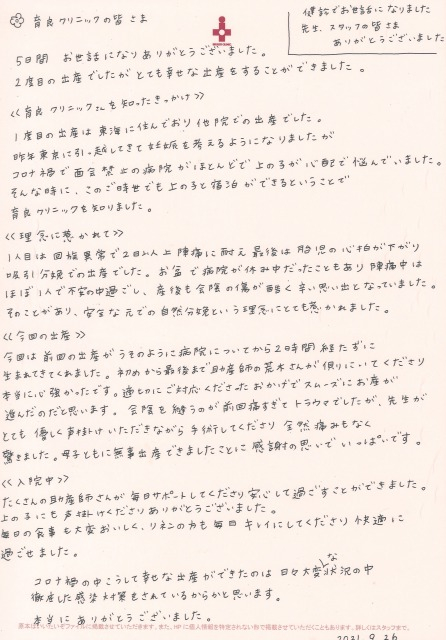 育良クリニックの皆さま
健診でお世話になりました
先生、スタッフの皆さま
ありがとうございました
5日間 お世話になりありがとうございました。
2度目の出産でしたがとても幸せな出産をすることができました。
<<育良クリニックさんを知ったきっかけ>>
1度目の出産は東海に住んでおり他院での出産でした。
昨年東京に引っ越してきて妊娠を考えるようになりましたが
コロナ禍で面会禁止の病院がほとんどで上の子が心配で悩んでいました。
そんな時に、このご時世でも上の子と宿泊ができるということで
育良クリニックを知りました。
<<理念に惹かれて>>
1人目は回旋異常で2日以上陣痛に耐え最後は胎児の心拍が下がり
吸引分娩での出産でした。お盆で病院が休み中だったこともあり陣痛中は
ほぼ1人で不安の中過ごし、産後も会陰の傷が酷く辛い思い出となっていました。
そのことがあり、安全な元での自然分娩という理念にとても惹かれました。
<<今回の出産>>
今回は前回の出産がうそのように病院についてから2時間経たずに
生まれてきてくれました。初めから最後まで助産師の荒木さんが側にいてくださり
本当に心強かったです。適切にご対応くださったおかげでスムーズにお産が
進んだのだと思います。会陰を縫うのが前回痛すぎてトラウマでしたが、先生が
とても優しく声掛けいただきながら手術してくださり全然痛みもなく
驚きました。母子ともに無事出産できましたことに感謝の思いでいっぱいです。
<<入院中>>
たくさんの助産師さんが毎日サポートしてくださり安心して過ごすことができました。
上の子にも声掛けくださりありがとうございました。
毎日の食事も大変おいしく、リネンの方も毎日キレイにしてくださり快適に
過ごせました。
コロナ禍の中こうして幸せな出産ができたのは日々大変な状況の中
徹底した感染対策をされているからかと思います。
本当にありがとうございました。
基本はいただいたぞファイルに掲載させていただきます。また、HPに個人情報を特定されない形で掲載させていただくこともあります。詳しくはスタッフまで。
2021.9.26